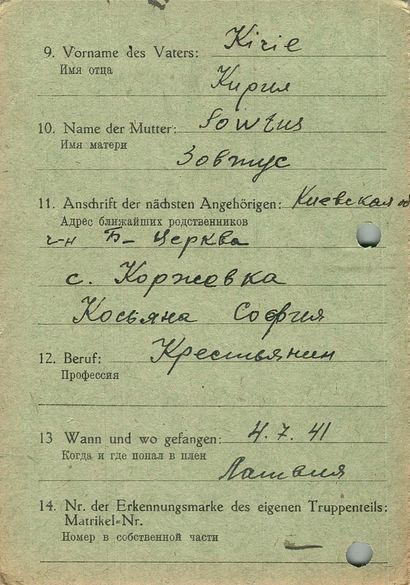 9. Vorname des Vaters: Kirie
Имя отца
Кирия
10. Name der Mutter: Sowtus
Имя матери
Зовтус
11. Anschrift der nächsten Angehörigen: Киевская об
Адрес ближайших родственников
р-н Б-Церква
с. Коржовка
Косьяна София
12. Beruf: Крестьянин
Профессия
13 Wann und wo gefangen: 4.7.41
Когда и где попал в плен
Латвия
14. Nr. der Erkennungsmarke des eigenen Truppenteils:
Matrikel-Nr.
Номер в собственной части —